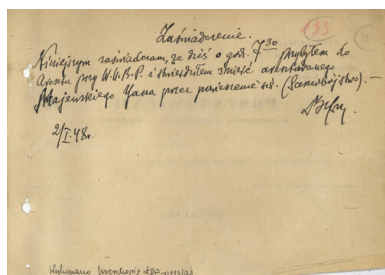 Zaświadczenie.
33
Niniejszym zaświadczam, że dziś o god. 7³⁰ przybyłem do
aresztu przy W.U.B.P. i stwierdziłem śmierć aresztowanego
Krajewskiego Jana przez powieszenie się. (Samobójstwo). –
2/I.48r.